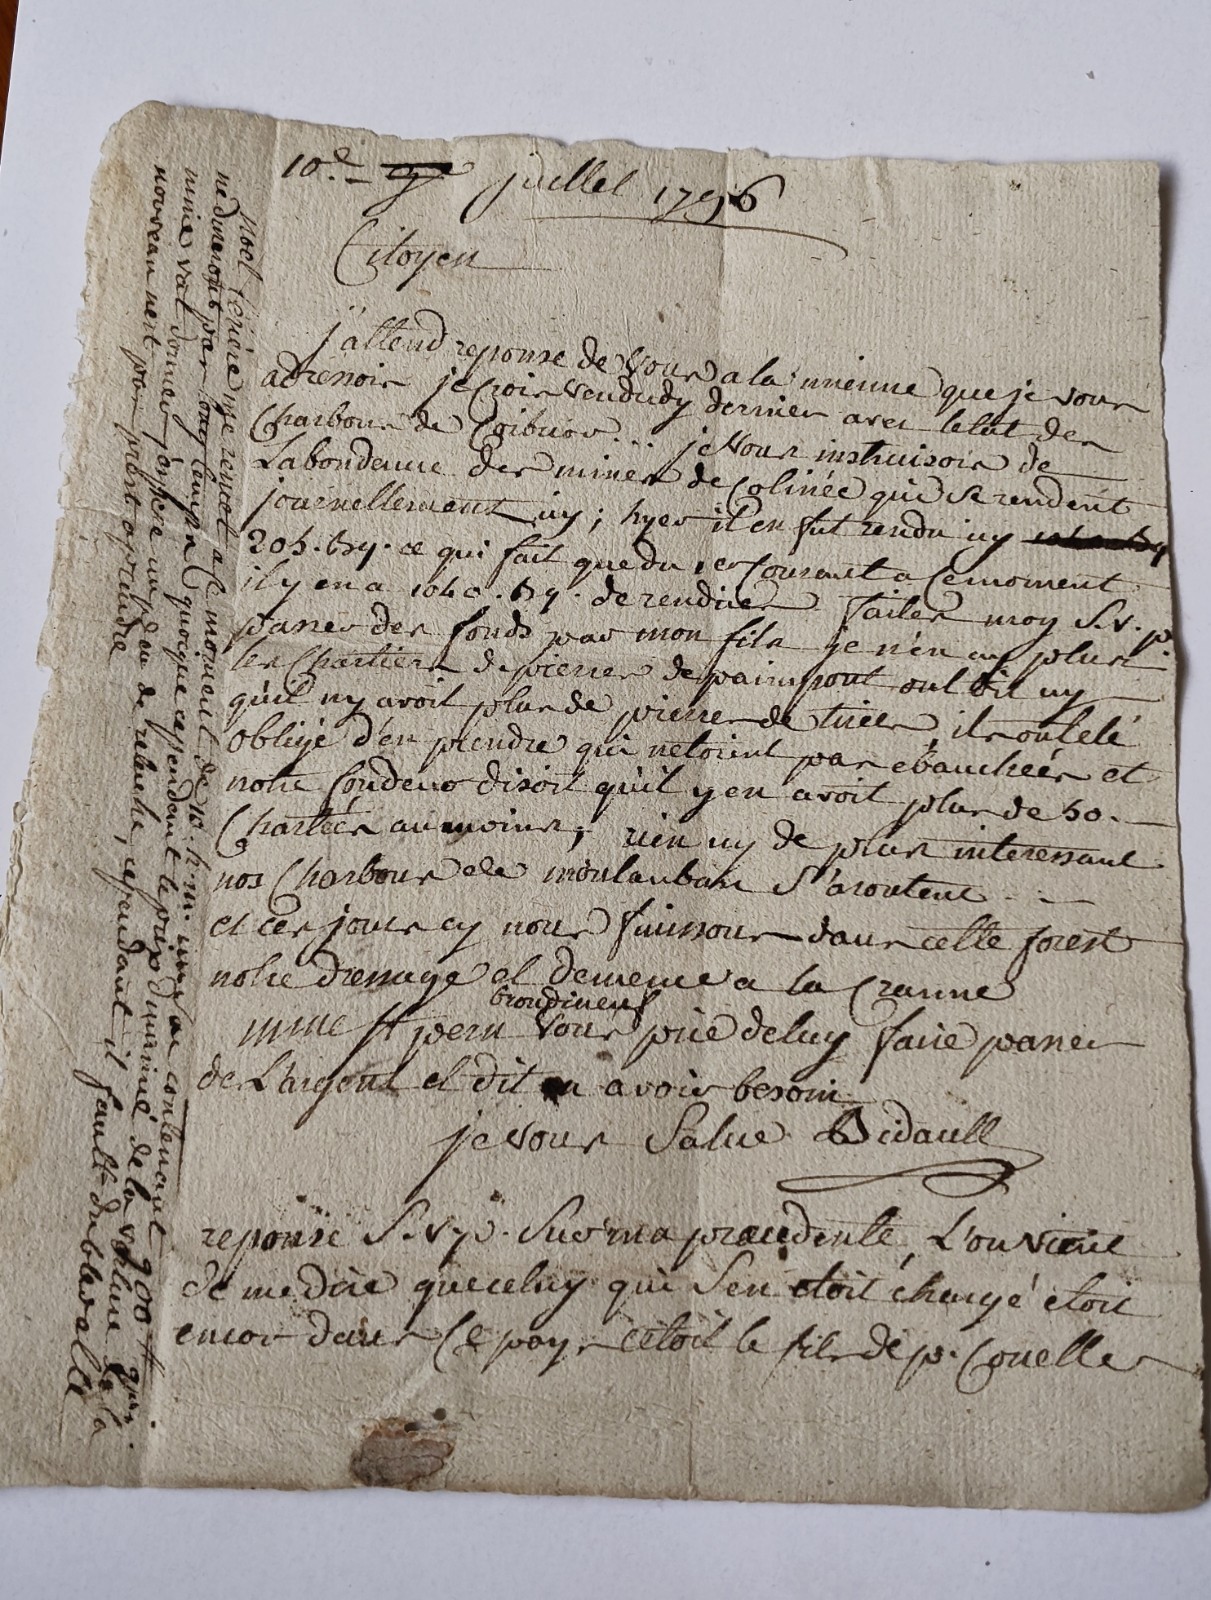 10e juillet 1796
Citoyen
j'attend reponse de vous a la mienne que je vous
adressois je crois vendredy dernier avec letat des
Charbons de Coibuos ... je vous instruisois de
Labondence des mines de Colinée qui se rendent
journellement icy ; hyer il en fut rendu icy
205. bq. ce qui fait que du 1er courant a ce moment
il y en a 1040. bq. de rendues faites moy S. v. p.
passer des fonds par mon fils je n'en ay plus
les Chartiers de pierres de paimpont ont dit icy
quil ny avoit plus de pierres de tirées, ils ont eté
obligé d'en prendre qui netoient pas ebauchées et
notre fondeur disoit quil y en avoit plus de 50.
Chartées au moins ; rien icy de plus interessant
nos Charbons de montauban s'aroutent
et ces jours cy nous finissons dans cette forest
notre dressage et de meme a la Cranne
brondineuf
mme St pern vous prie de luy faire passer
de L'argent et dit en avoir besoin
je vous Salue Bidault
reponse S. v. p. Sur ma precedente, L'on vient
de me dire que celuy qui s'en etoit chargé etoit
encor dans ce pays c'etoit le fils de p. Couelle
Noel ferière me remet a ce moment de 10. h. m. un sac contenant 900tt qui
ne dureront pas longtemps quoique cependant le prix du miné de la
mine vat donner j'espere un peu de relache, cependant il fault du bled
nouveau nest pas prest a prendre